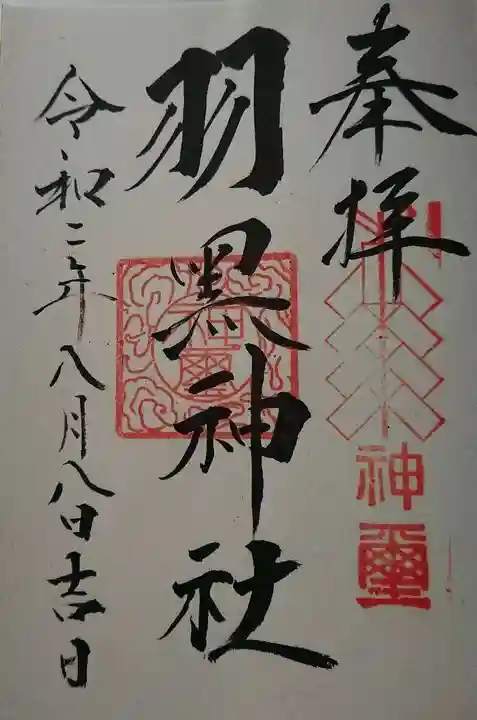 奉拝
神璽
羽黒神社
神璽
令和二年八月八日吉日